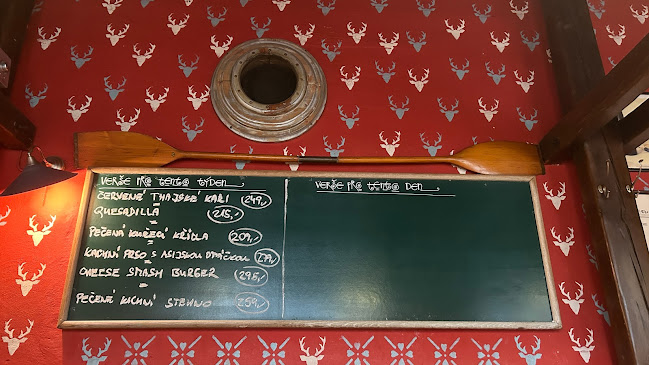 VERŠE PRO TENTO TÝDEN
VERŠE PRO TENTO DEN
ČERVENÉ THAJSKÉ KARI 249,-
QUESADILLA 215,-
PEČENÁ KUŘECÍ KŘÍDLA 209,-
KACHNÍ PRSO S ASIJSKOU OMÁČKOU 279,-
CHEESE SMASH BURGER 295,-
PEČENÉ KACHNÍ STEHNO 259,-